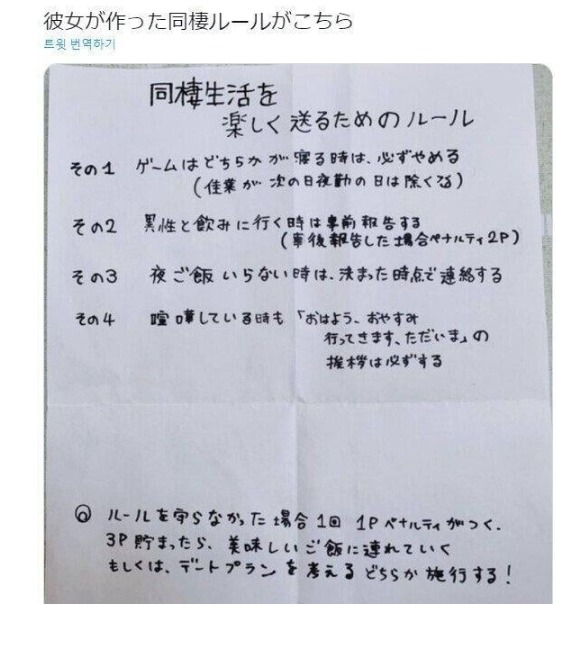 彼女が作った同棲ルールがこちら
트윗 번역하기
同棲生活を
楽しく送るためのルール
その1 ゲームはどちらかが寝る時は、必ずやめる
(佳業が次の日夜勤の日は除くる)
その2 異性と飲みに行く時は事前報告する
(事後報告した場合ペナルティ2P)
その3 夜ご飯いらない時は、決まった時点で連絡する
その4 喧嘩している時も「おはよう、おやすみ
行ってきます、ただいま」の
挨拶は必ずする
◎ ルールを守らなかった場合1回 1Pペナルティがつく.
3P貯まったら、美味しいご飯に連れていく
もしくは、デートプランを考えるどちらか施行する!